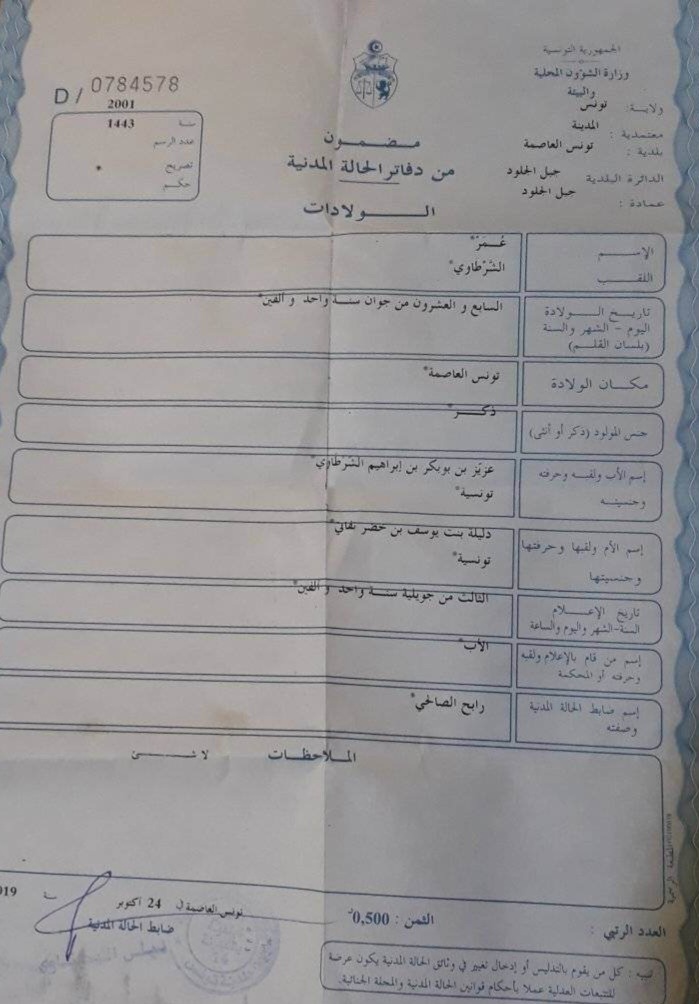 الجمهورية التونسية
وزارة الشؤون المحلية
والبيئة
ولاية : تونس
معتمدية : المدينة
بلدية : تونس العاصمة
الدائرة البلدية جبل الجلود
عمادة : جبل الجلود
D / 0784578
سنة 2001
عدد الرسم 1443
تصريح *
حكم
مضمون
من دفاتر الحالة المدنية
الولادات
الإسم عُمَرْ*
اللقب الشَّرْطاوي*
تاريخ الولادة
اليوم - الشهر والسنة
(بلسان القلم)
السابع و العشرون من جوان سنة واحد و ألفين*
مكان الولادة تونس العاصمة*
جنس المولود (ذكر أو أنثى) ذكر*
إسم الأب ولقبه وحرفته
وجنسيته
عزيّز بن بوبكر بن إبراهيم الشّرطاوي*
تونسية*
إسم الأم ولقبها وحرفتها
وجنسيتها
دليلة بنت يوسف بن خضر
تونسية*
تاريخ الإعلام
السنة-الشهر واليوم والساعة
الثالث من جويلية سنة واحد و ألفين*
إسم من قام بالإعلام ولقبه
وحرفته أو المحكمة
الأب*
إسم ضابط الحالة المدنية
وصفته
رابح الصالحي*
الملاحظات
لا شئ
المطبعة الرسمية
تونس العاصمة في 24 أكتوبر سنة 019
ضابط الحالة المدنية
الثمن : 0,500
العدد الرتبي :
تنبيه : كل من يقوم بالتدليس أو إدخال تغيير في وثائق الحالة المدنية يكون عرضة
للتتبعات العدلية عملا بأحكام قوانين الحالة المدنية والمجلة الجنائية.